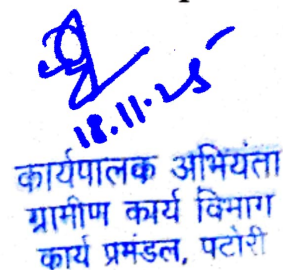 18.11.25
कार्यपालक अभियंता
ग्रामीण कार्य विभाग
कार्य प्रमंडल, पटोरी